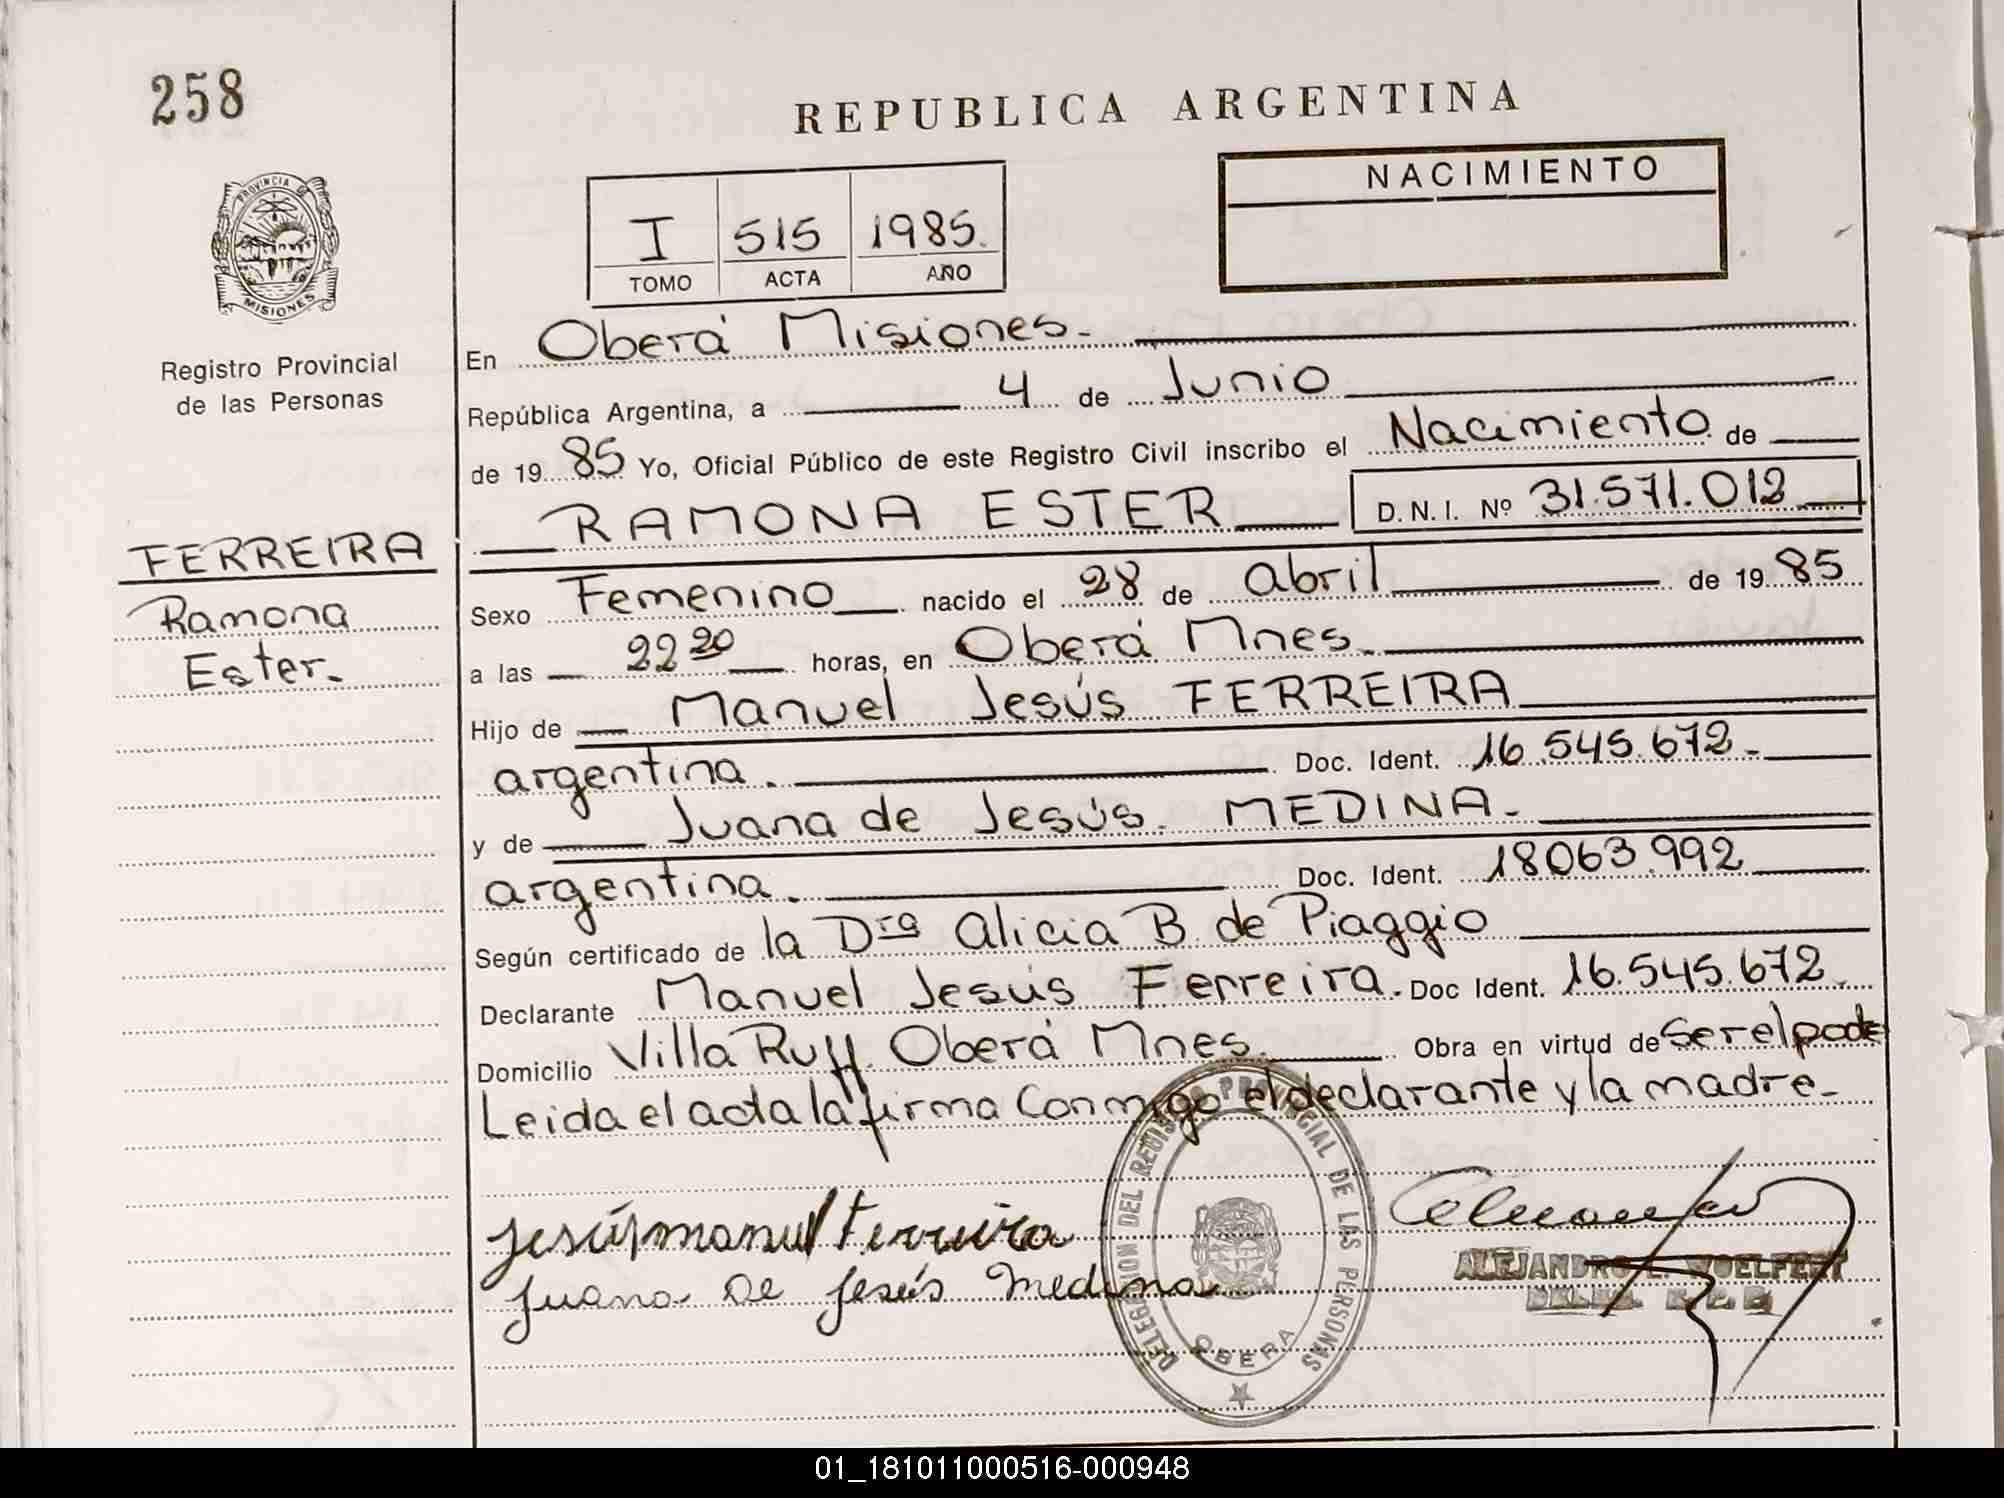 258
REPUBLICA ARGENTINA
NACIMIENTO
I 515 1985.
TOMO ACTA AÑO
PROVINCIA DE
MISIONES
Registro Provincial
de las Personas
En Oberá Misiones.
República Argentina, a 4 de Junio
de 19 85 Yo, Oficial Público de este Registro Civil inscribo el Nacimiento de
RAMONA ESTER D.N.I. Nº 31.571.012
FERREIRA
Ramona
Ester.
Sexo Femenino nacido el 28 de abril de 19 85
a las 22 20 horas, en Oberá Mnes.
Hijo de Manuel Jesús FERREIRA
argentina. Doc. Ident. 16.545.672.
y de Juana de Jesús. MEDINA.
argentina. Doc. Ident. 18063.992
Según certificado de la Dra Alicia B. de Piaggio
Declarante Manuel Jesús Ferreira. Doc Ident. 16.545.672.
Domicilio Villa Ruff. Oberá Mnes. Obra en virtud de Ser el padre
Leida el acta la firma Conmigo el declarante y la madre.
Jesús manuel Ferreira
Juana De Jesús Medina
DELEGACION DEL REGISTRO PROVINCIAL DE LAS PERSONAS
OBERA
ALEJANDRO
01_181011000516-000948